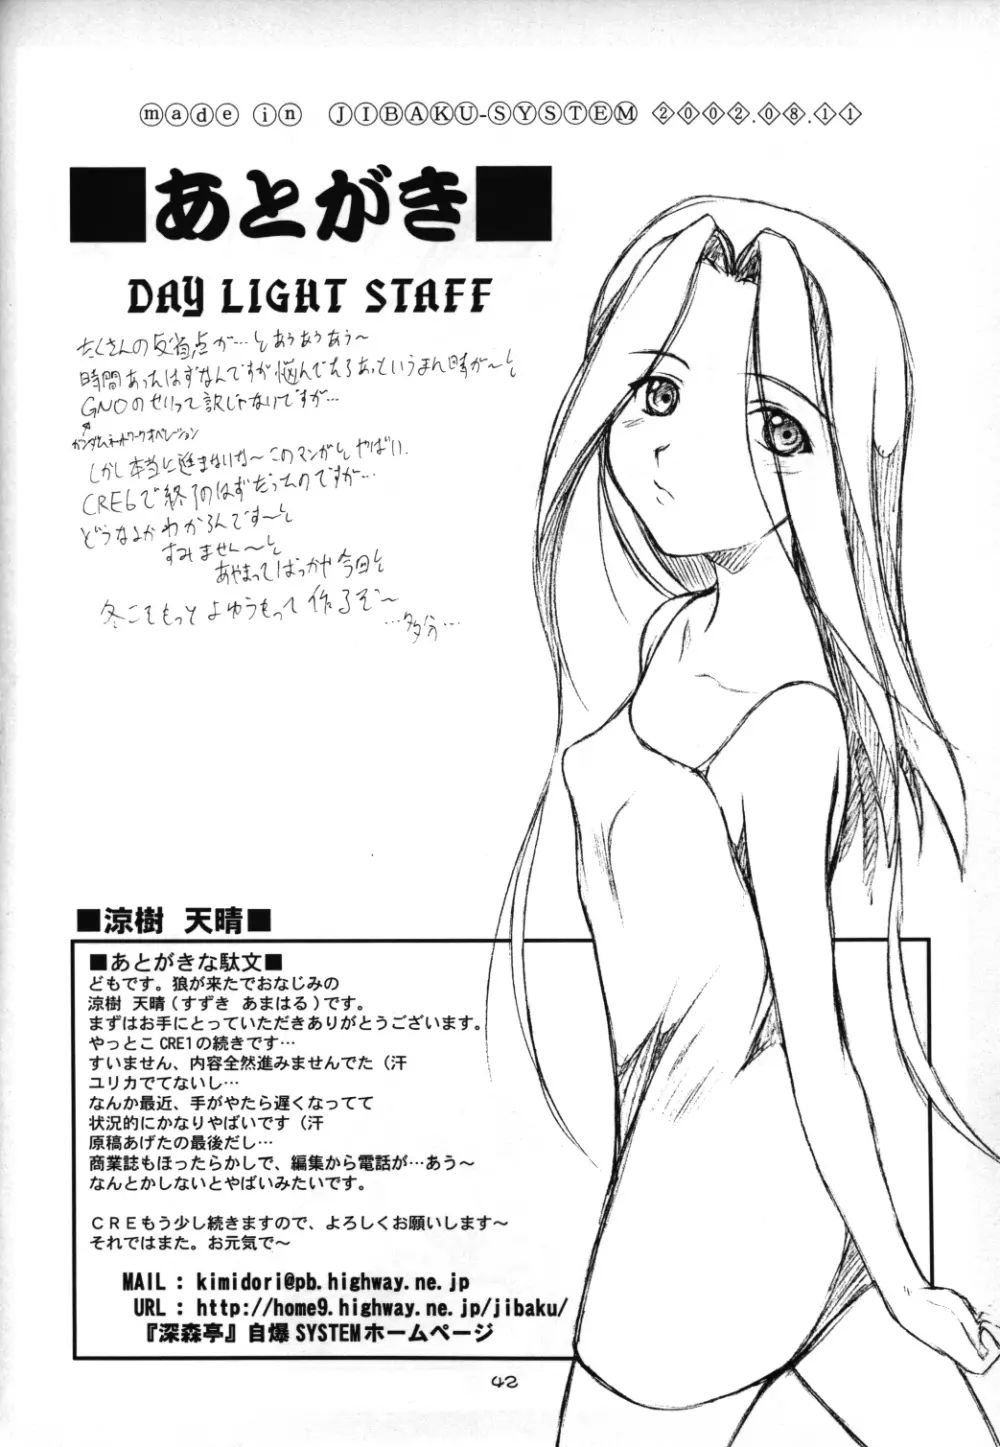 made in JIBAKU-SYSTEM 2002.08.11
■あとがき■
DAY LIGHT STAFF
たくさんの反省点が…とあうあうあう〜
時間あったはずなんですが悩んでたらあっというまに時が〜と
GNOのせいって訳じゃないですが…
ガンダムネットワークオペレーション
しかし本当に進まないな〜このマンガと やばい.
CRE6で終了のはずだったのですが…
どうなるかわかるんです〜と
すみません〜と
あやまってばっかや今回と
冬こそもっと よゆうもって 作るぞ〜
…多分…
■涼樹 天晴■
■あとがきな駄文■
どもです。狼が来たでおなじみの
涼樹 天晴（すずき あまはる）です。
まずはお手にとっていただきありがとうございます。
やっとこCRE1の続きです…
すいません、内容全然進みませんでた（汗
ユリカでてないし…
なんか最近、手がやたら遅くなってて
状況的にかなりやばいです（汗
原稿あげたの最後だし…
商業誌もほったらかしで、編集から電話が…あう〜
なんとかしないとやばいみたいです。
ＣＲＥもう少し続きますので、よろしくお願いします〜
それではまた。お元気で〜
MAIL : kimidori@pb.highway.ne.jp
URL : http://home9.highway.ne.jp/jibaku/
『深森亭』自爆SYSTEMホームページ
42